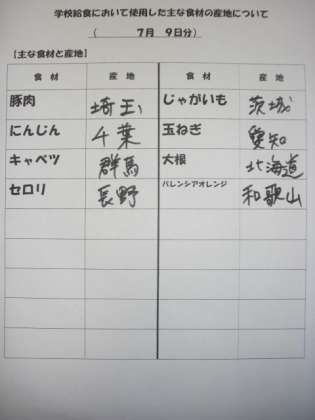 学校給食において使用した主な食材の産地について
（ 7月 9日分）
【主な食材と産地】
食材 産地 食材 産地
豚肉 埼玉 じゃがいも 茨城
にんじん 千葉 玉ねぎ 愛知
キャベツ 群馬 大根 北海道
セロリ 長野 バレンシアオレンジ 和歌山